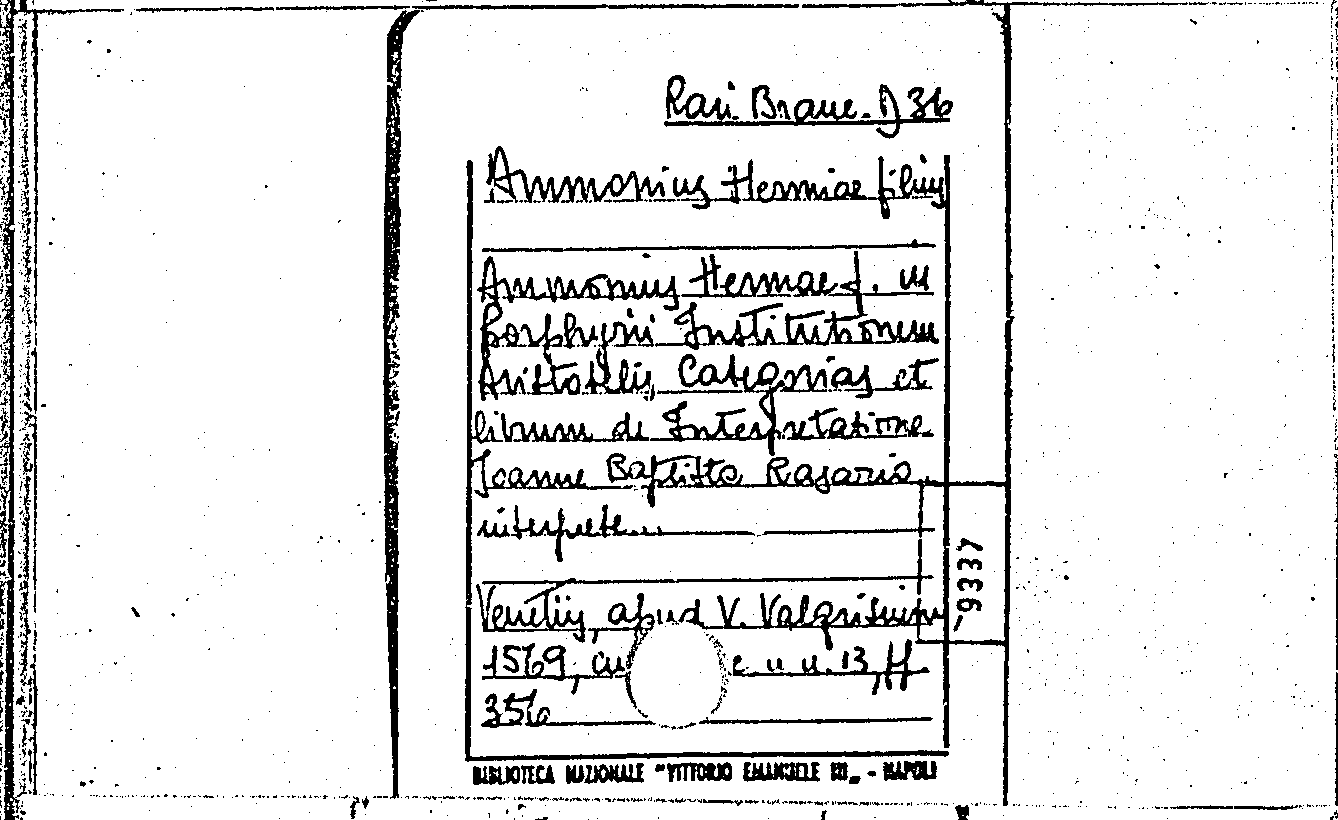 Rari. Branc. D 36
Ammonius Hermiae filius
Ammonius Hermae f. in
Porphyrii Institutionem
Aristotelis Categorias et
librum de Interpretatione
Joanne Baptista Rasario
interprete...
Venetiis, apud V. Valgrisium,
1569, 13, ff
356
9337
BIBLIOTECA NAZIONALE "VITTORIO EMANUELE III" - NAPOLI